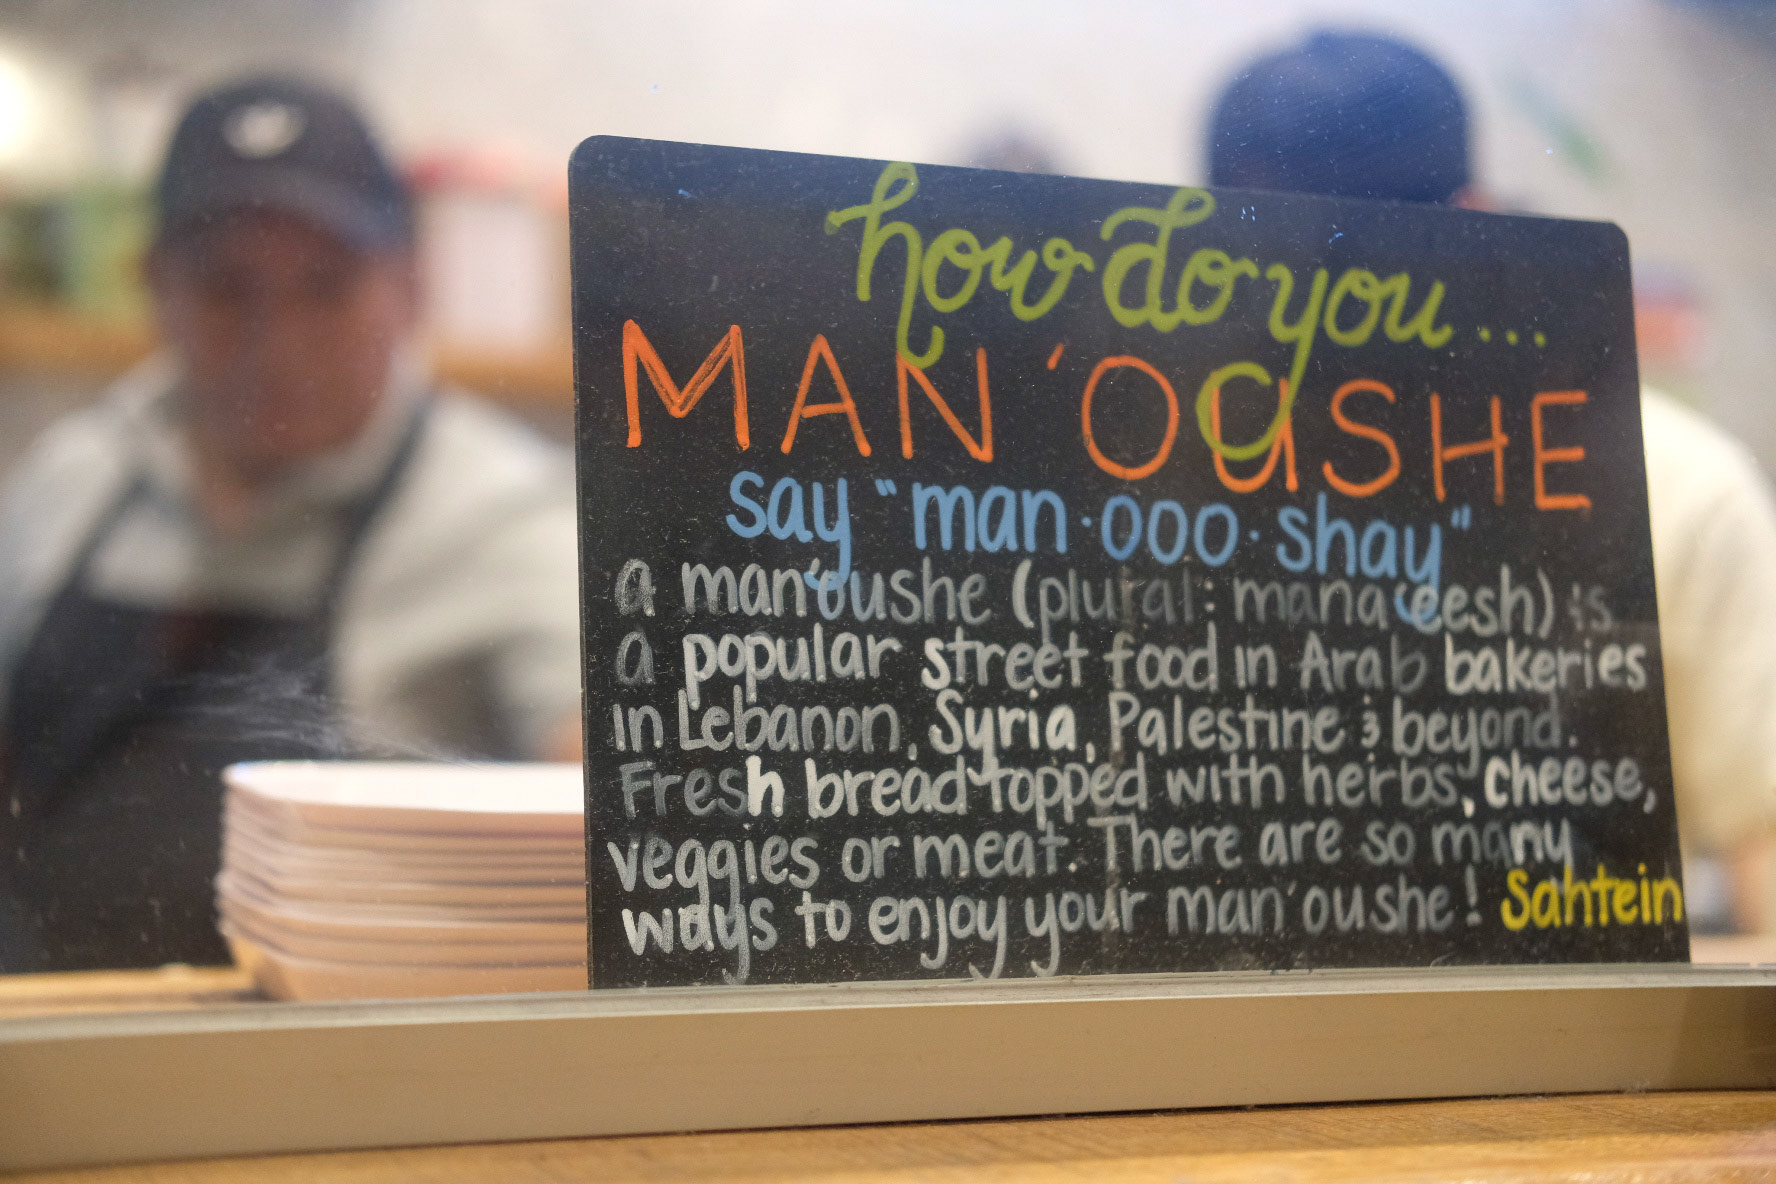 how do you...
MAN'OUSHE
say "man·ooo·shay"
a man'oushe (plural: mana'eesh) is
a popular street food in Arab bakeries
in Lebanon, Syria, Palestine & beyond.
Fresh bread topped with herbs, cheese,
veggies or meat. There are so many
ways to enjoy your man'oushe! Sahtein